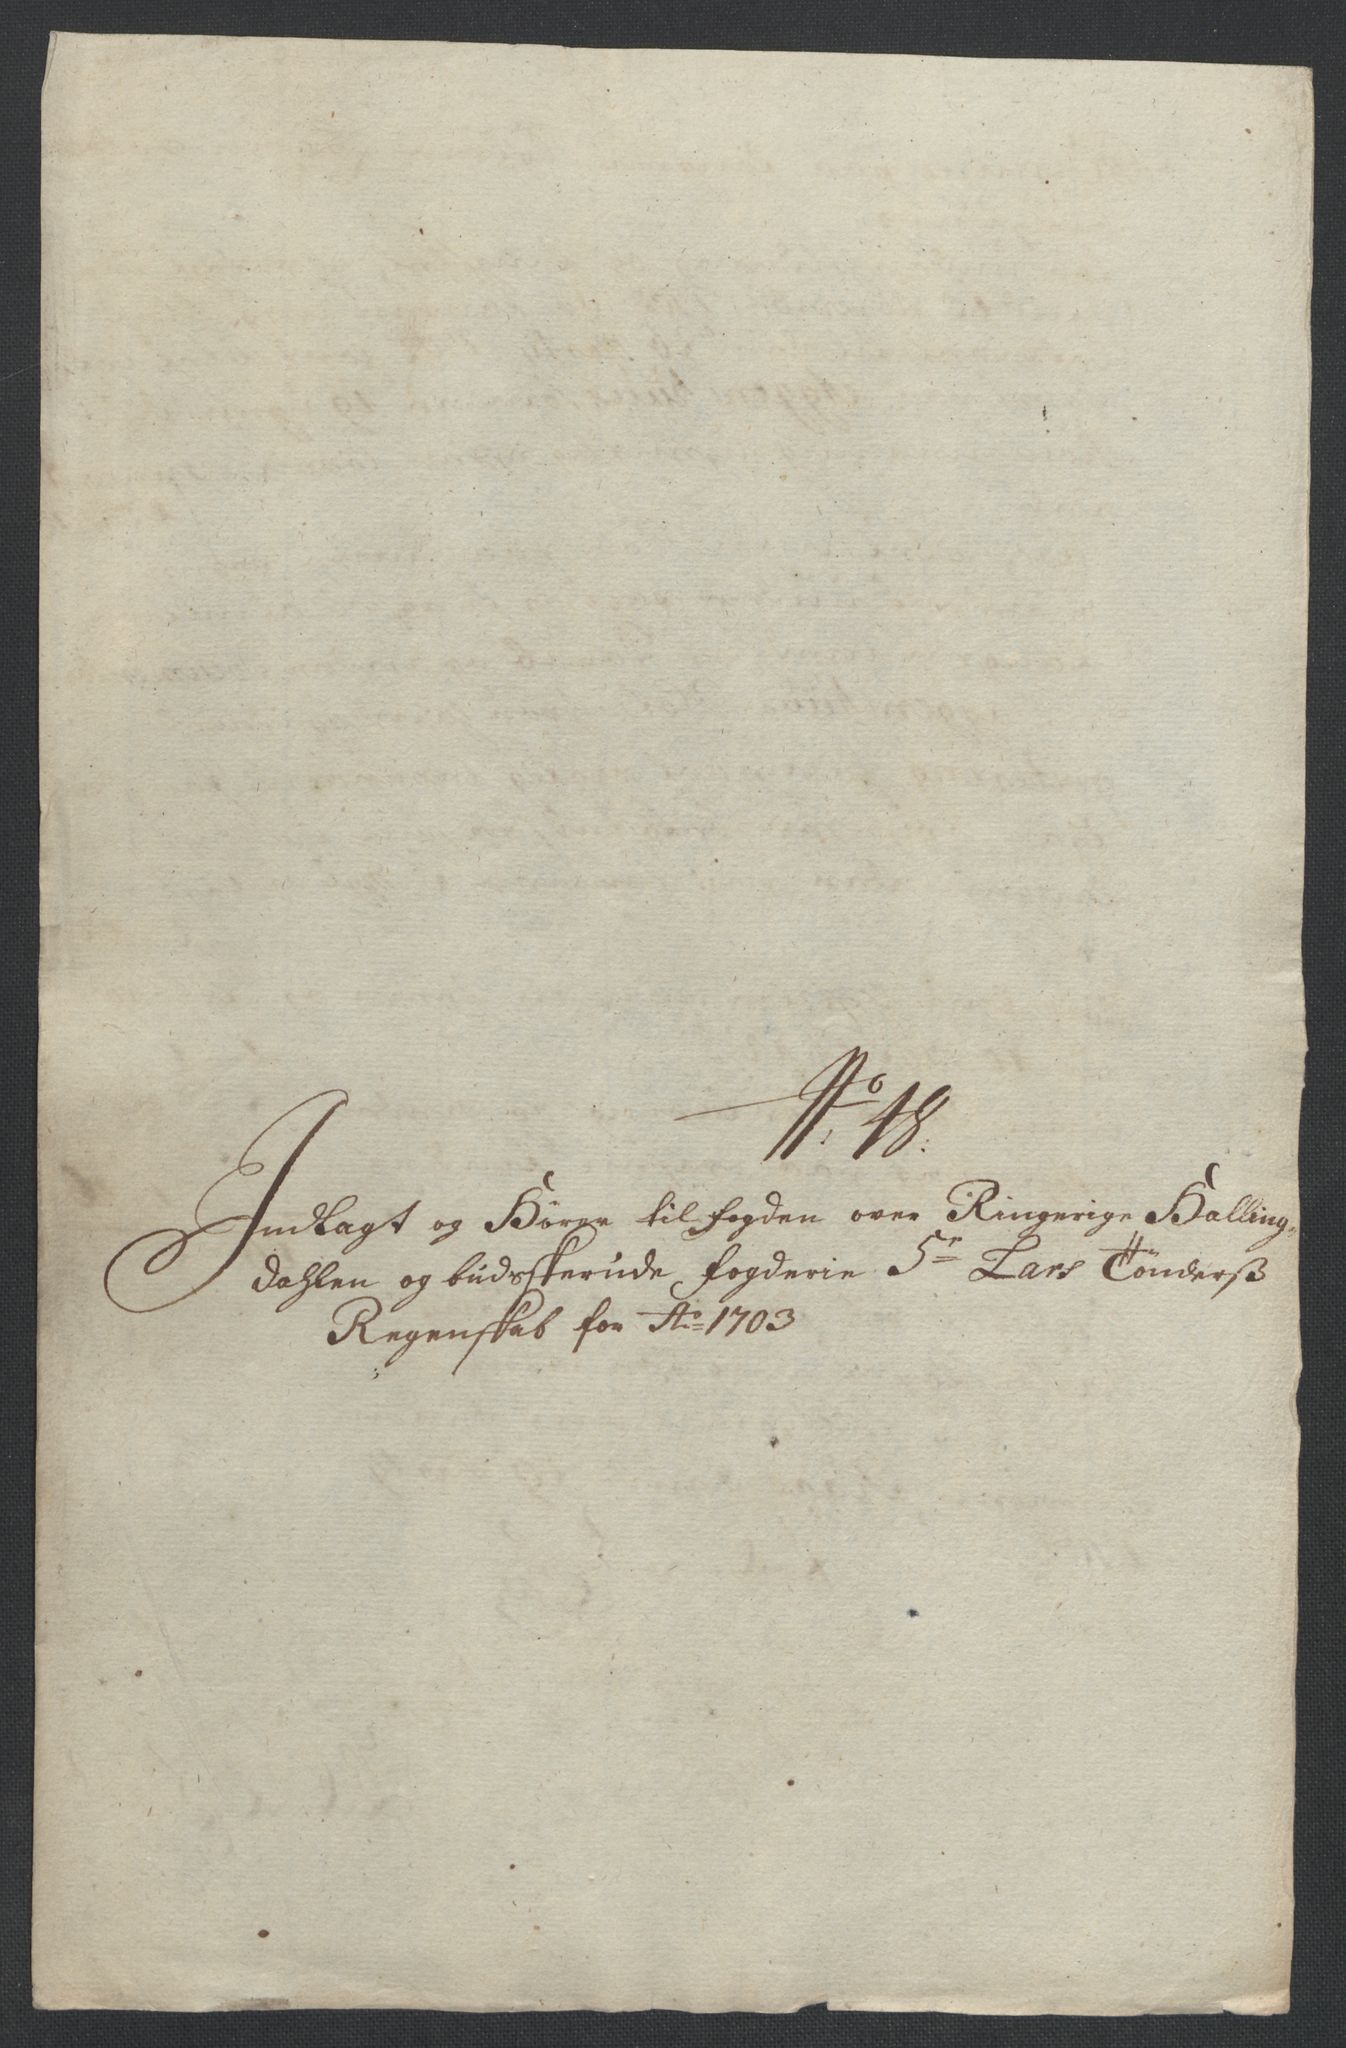 No. 48.
Indlagt og Hörer til fogden over Ringerige Halling-
dahlen og budsskerude fogderie Sr Lars Tönders
Regenskab for Ao 1703